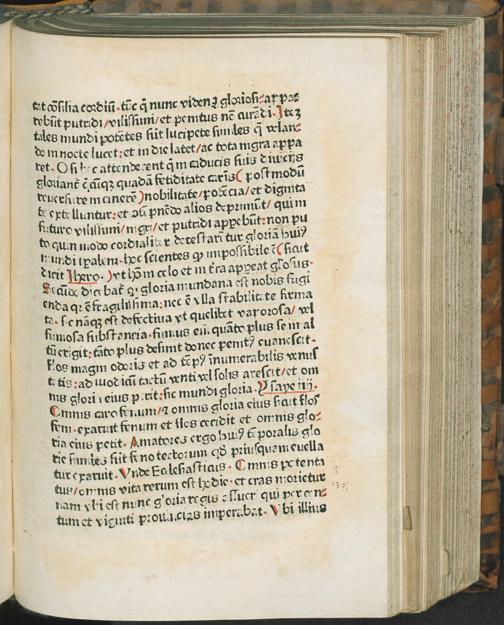 tat cōsilia cordiū. tūc q̄ nunc vident̄ gloriosi appa
rebūt putridi/vilissimi/et penitus nō curādi. Itē
tales mundi potētes sūt lucipete similes q̄ velan
do in nocte lucet: et in die latet/ac tota nigra appa
ret. O si hec attenderent q̄ in caducis suis diuersis
gloriant̄ quadā fetiditate carnis (post modū
reuersure in cinerē) nobilitate/potēcia/et dignita
te extolluntur: et alios deprimūt/qui in
futuro vilissimi/nigri/et putridi apparebūt: non pu
to quin modo cordialiter detestarētur gloriā huiꝰ
mundi ipsam. hec scientes qꝫ impossibile ē (sicut
dicit Ihero.) vt hō in celo et in t̄ra appareat gloriosus.
Secūde dicebat qꝫ gloria mundana est nobis fugi
enda qꝛ ē fragilissima: nec ē vlla stabilitate firma
ta. sic nāqꝫ est defectiua vt quelibet vaporosa/vel
fumosa substancia. fumus eiꝫ quāto plus se in al
tū erigit: tāto plus desinit donec penitꝰ euanescit.
flos magni odoris et ad tēpꝰ inumerabilis venus
tatis: ad modicū tactū venti vel solis arescit/et om
nis gloria eius perit: sic mundi gloria. Ysaye iiij.
Omnis caro fenum/⁊ omnis gloria eius sicut flos
feni. exaruit fenum et flos cecidit et omnis glo
ria eius perit. Amatores ergo huiꝰ tēporalis glo
rie similes sūt feno tectorum qd̄ priusquam euella
tur exaruit. Vnde Ecclesiasticus. Omnis potenta
tus/omnis vita rerum est hodie. et cras morietur
nam vbi est nunc gloria regis assueri qui per cen
tum et viginti prouincias imperabat. Vbi illius